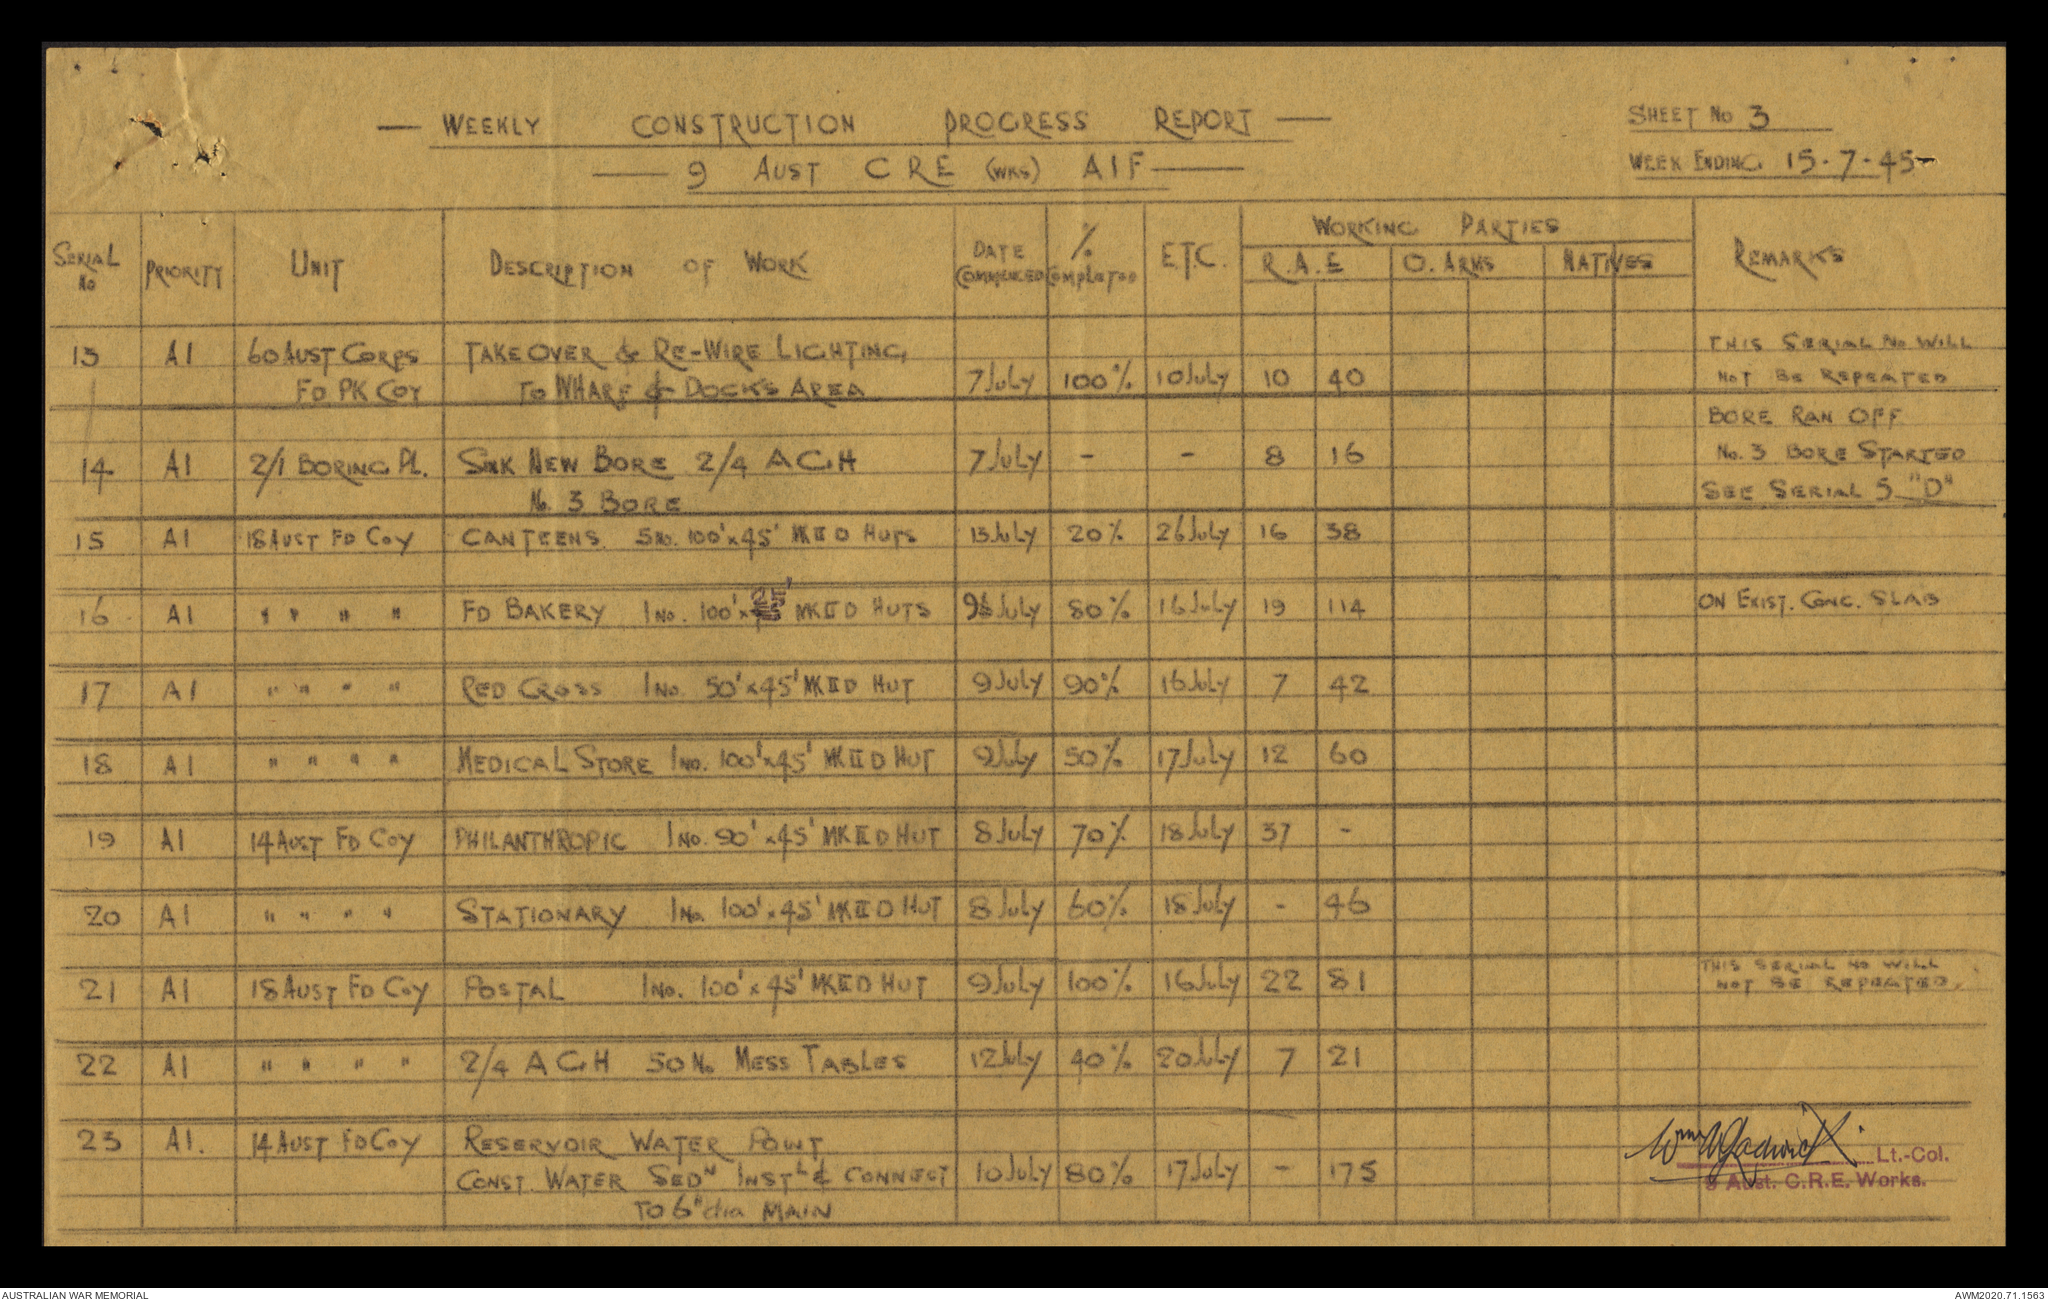 — WEEKLY CONSTRUCTION PROGRESS REPORT —
SHEET No 3
— 9 AUST C R E (WKS) AIF —
WEEK ENDING 15-7-45
SERIAL No PRIORITY UNIT DESCRIPTION OF WORK DATE COMMENCED % COMPLETED E.T.C. WORKING PARTIES REMARKS
R.A.E O. ARMS NATIVES
13 A1 60 AUST CORPS TAKE OVER & RE-WIRE LIGHTING THIS SERIAL No WILL
FD PK COY TO WHARF & DOCKS AREA 7 July 100% 10 July 10 40 NOT BE REPEATED
BORE RAN OFF
14 A1 2/1 BORING PL. SINK NEW BORE 2/4 A G H 7 July - - 8 16 No. 3 BORE STARTED
No. 3 BORE SEE SERIAL 5 "D"
15 A1 18 AUST FD COY CANTEENS 5 No. 100' x 45' MK II D HUTS 13 July 20% 26 July 16 38
16 A1 " " " " FD BAKERY 1 No. 100' x 25' MK II D HUTS 9 July 80% 16 July 19 114 ON EXIST. CONC. SLAB
17 A1 " " " " RED CROSS 1 No. 50' x 45' MK II D HUT 9 July 90% 16 July 7 42
18 A1 " " " " MEDICAL STORE 1 No. 100' x 45' MK II D HUT 9 July 50% 17 July 12 60
19 A1 14 AUST FD COY PHILANTHROPIC 1 No. 90' x 45' MK II D HUT 8 July 70% 18 July 37 -
20 A1 " " " " STATIONARY 1 No. 100' x 45' MK II D HUT 8 July 60% 18 July - 46
21 A1 18 AUST FD COY POSTAL 1 No. 100' x 45' MK II D HUT 9 July 100% 16 July 22 81 THIS SERIAL No WILL
NOT BE REPEATED.
22 A1 " " " " 2/4 A G H 50 No. MESS TABLES 12 July 40% 20 July 7 21
23 A1. 14 AUST FD COY RESERVOIR WATER POINT
CONST. WATER SEDN INSTL & CONNECT 10 July 80% 17 July - 175
TO 6" dia MAIN
Lt.-Col.
9 Aust. C.R.E. Works.
AUSTRALIAN WAR MEMORIAL
AWM2020.71.1563